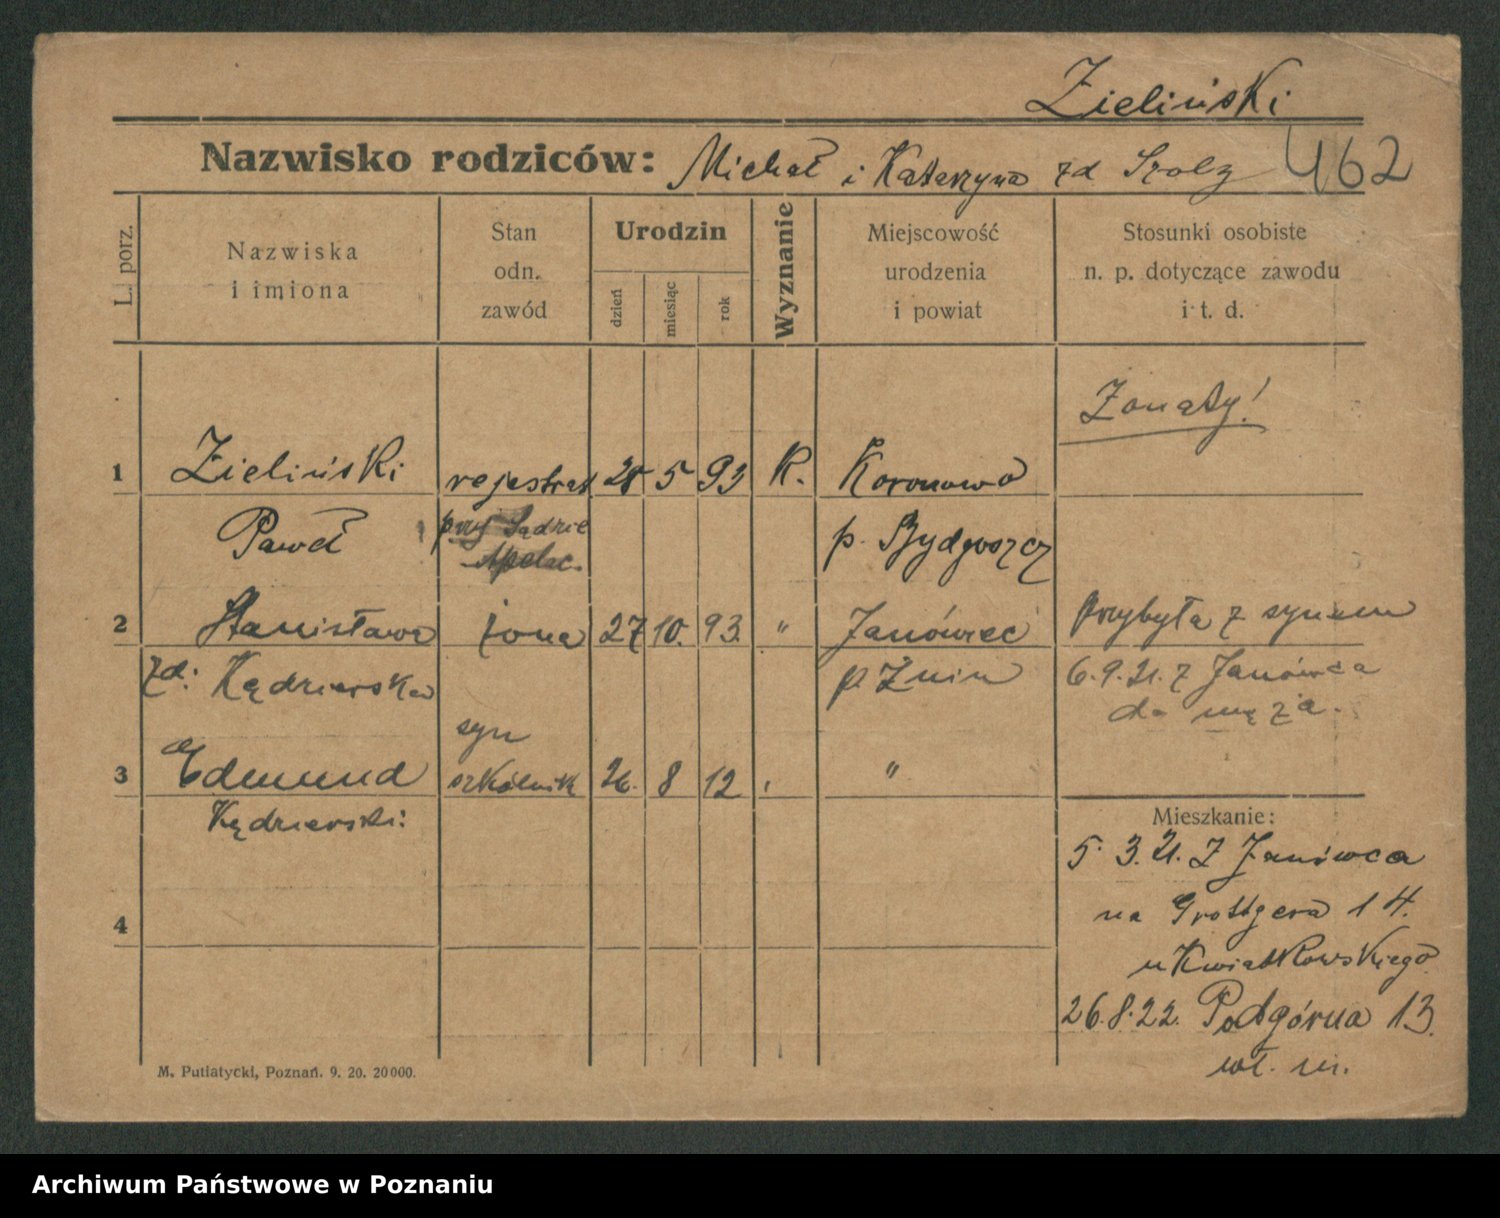 Zieliński
Nazwisko rodziców: Michał i Katarzyna zd 462
L. porz.
Nazwiska
i imiona
Stan
odn.
zawód
Urodzin
dzień
miesiąc
rok
Wyznanie
Miejscowość
urodzenia
i powiat
Stosunki osobiste
n. p. dotyczące zawodu
i t. d.
Żonaty!
1 Zieliński rejestrat 5 93 K. Koronowo
Paweł przy Sądzie p. Bydgoszcz
Apelac.
2 Stanisława żona 27 10. 93. " Janówiec Przybyła z synem
zd: Kędzierska p. Żnin 6.9.21. z Janówca
do męża.
syn
3 Edmund szkólnik 26. 8 12 "
Kędzierski:
Mieszkanie:
5. 3. 21. Z Janówca
na Grottgera 14.
u Kwiatkowskiego
4
26.8.22. Podgórna 13.
wł. m.
M. Putiatycki, Poznań. 9. 20. 20000.
Archiwum Państwowe w Poznaniu